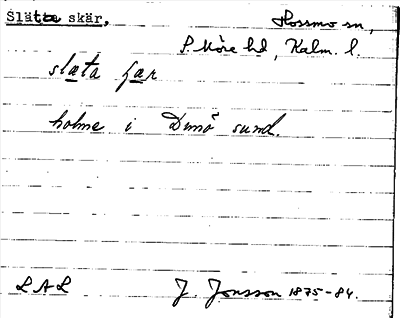 Slätta skär.
Hossmo sn,
S. Möre hd, Kalm. l.
slata
holme i Dunö sund.
LAL J. Jonsson 1875-84.